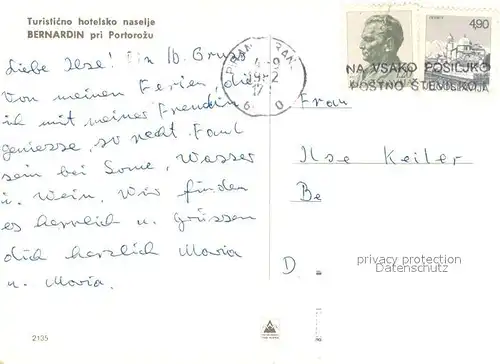 Turistično hotelsko naselje
BERNARDIN pri Portorožu
Liebe Ilse! Ein lb. Gruss
von meinen Ferien, die
ich mit meiner Freundin
geniesse, so recht Faul
sein bei Sonne, Wasser
u. Wein. Wir finden
es herrlich u. grüssen
dich herzlich Maria
u. Maria.
4,90
NA VSAKO POŠILJKO
POŠTNO ŠTEVILKO
Frau
Ilse Keiler
Be
D
privacy protection
Datenschutz
2135